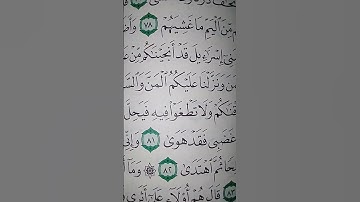 مِّنَ ٱلۡيَمِّ مَا غَشِيَهُمۡ ٧٨ وَأَضَ
بَنِيٓ إِسۡرَٰٓءِيلَ قَدۡ أَنجَيۡنَٰكُم مِّنۡ عَ
مَنَ وَنَزَّلۡنَا عَلَيۡكُمُ ٱلۡمَنَّ وَٱلسَّ
قۡنَٰكُمۡ وَلَا تَطۡغَوۡاْ فِيهِ فَيَحِلَّ
غَضَبِي فَقَدۡ هَوَىٰ ٨١ وَإِنِّي
لِحٗا ثُمَّ ٱهۡتَدَىٰ ٨٢ ۞ وَمَآ أَ
٨٣ قَالَ هُمۡ أُوْلَآءِ عَلَىٰٓ أَثَرِي